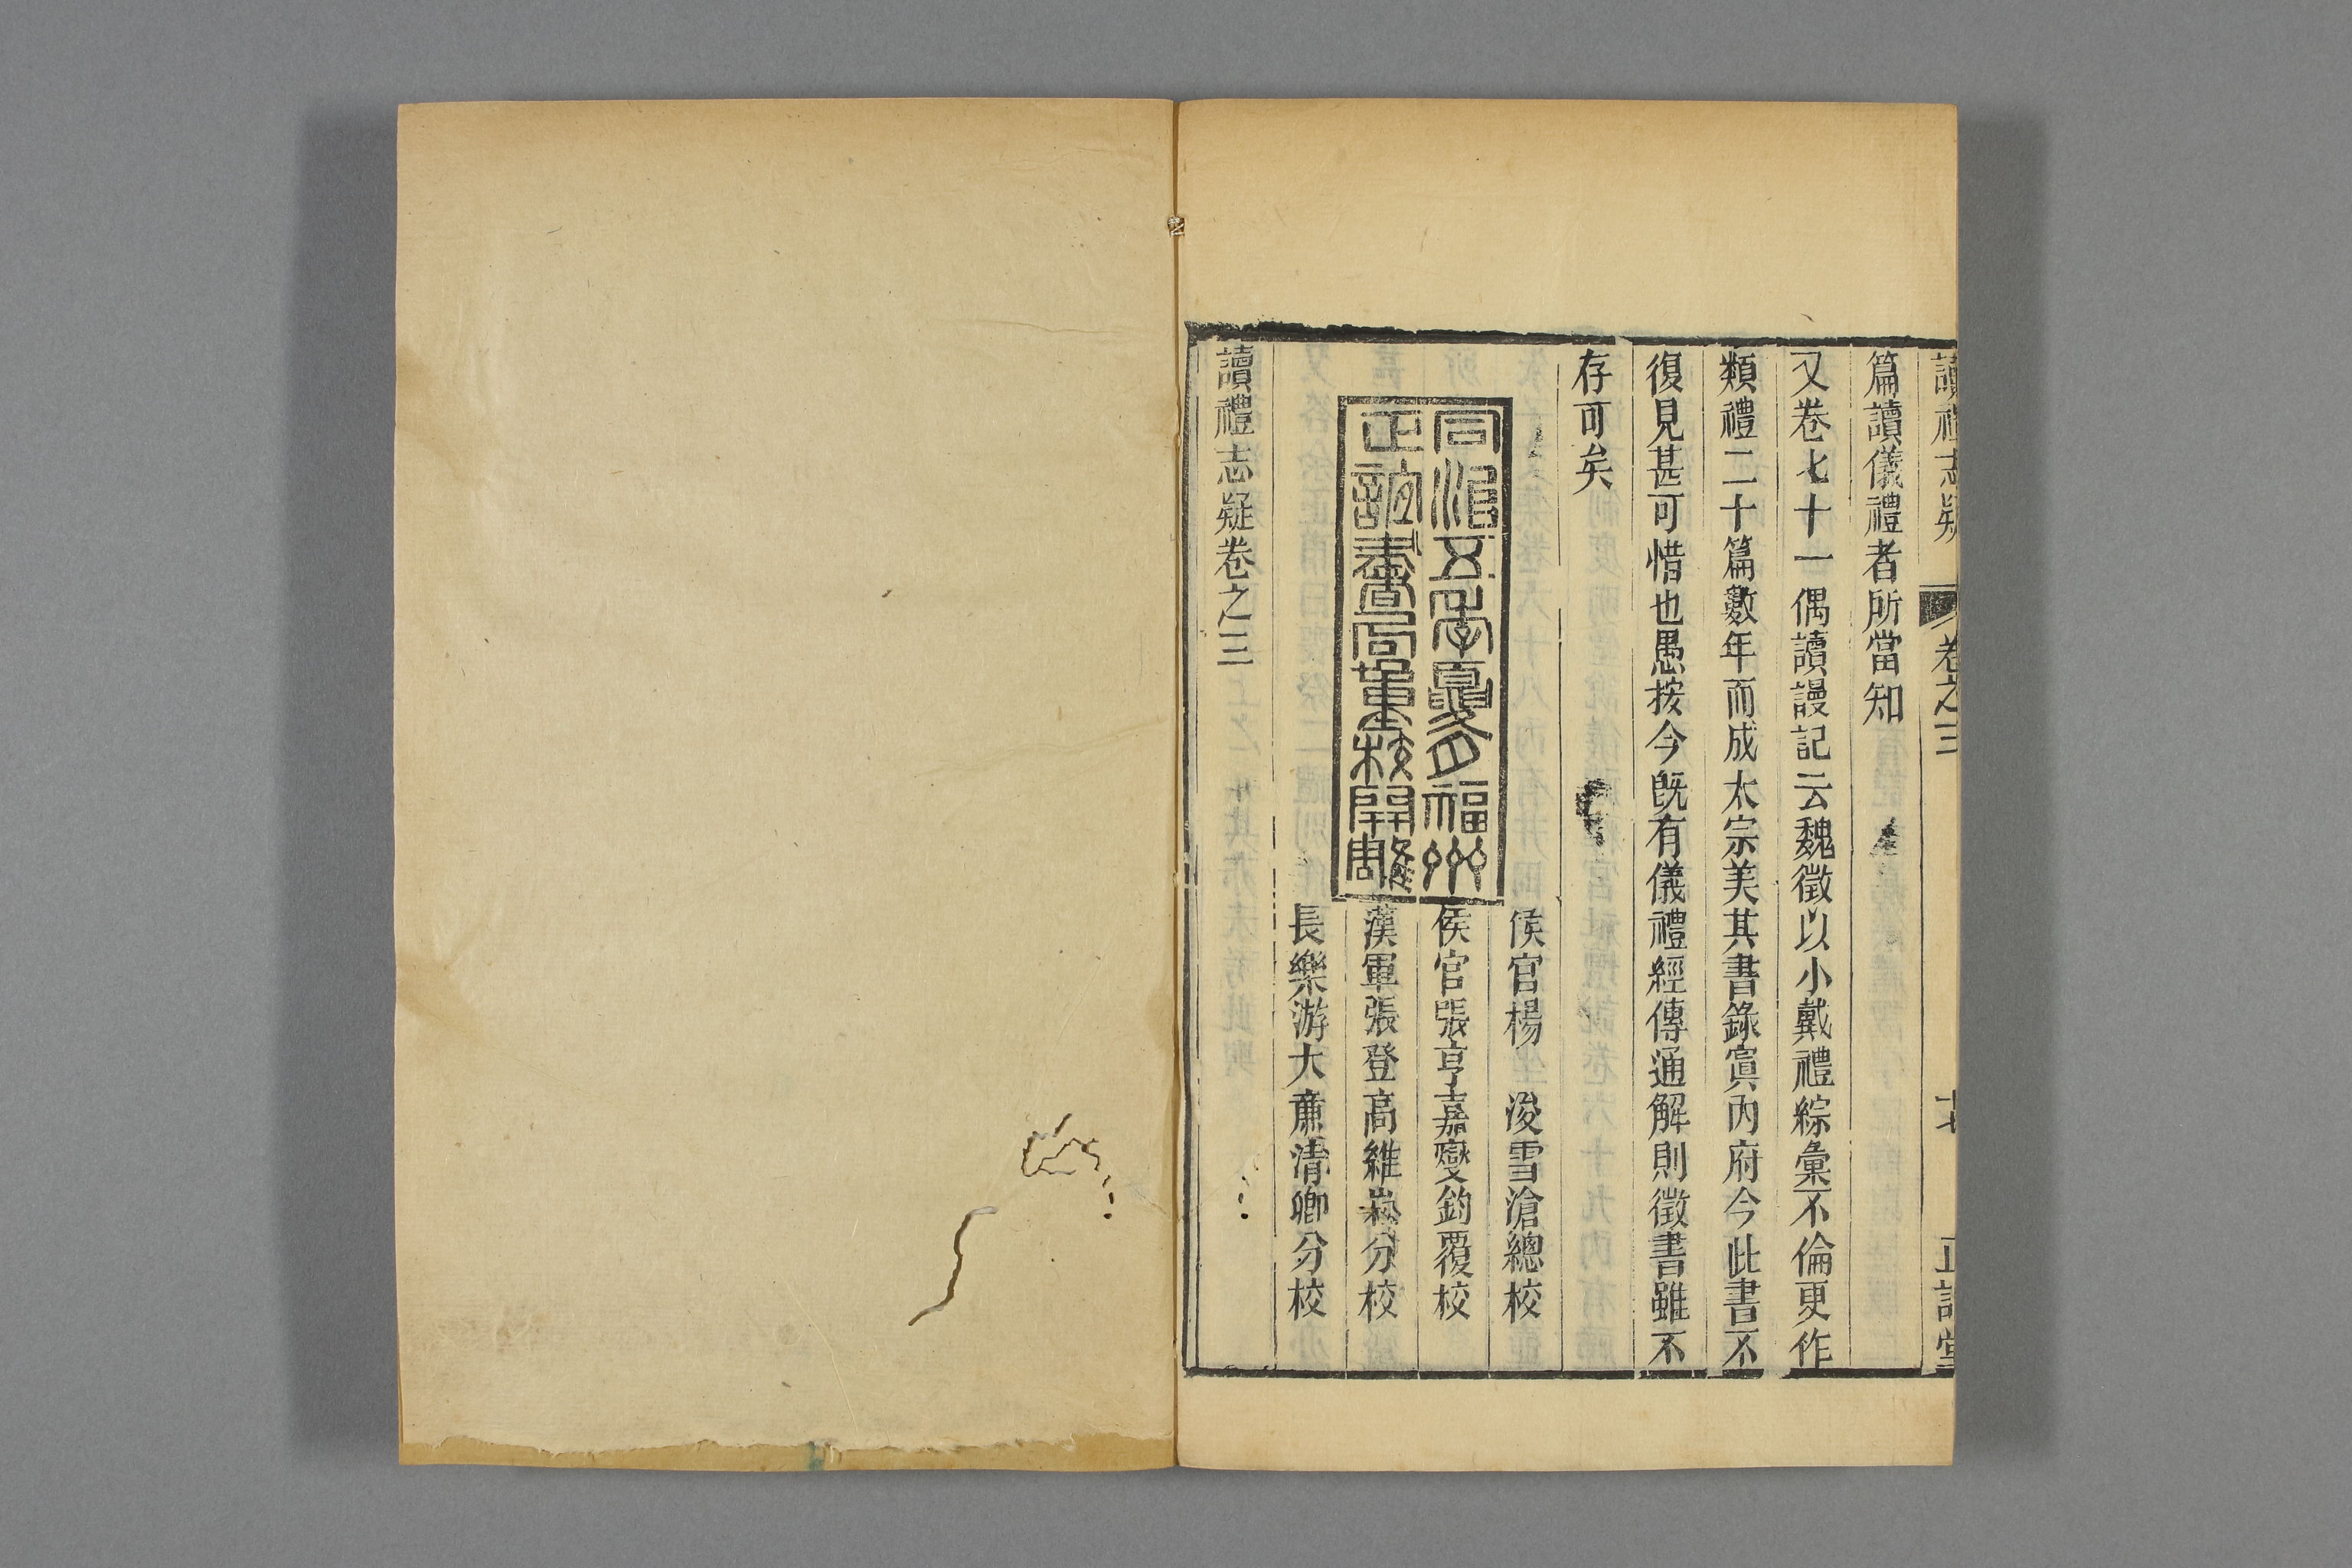 讀禮志疑 卷之三 十七 正誼堂
篇讀儀禮者所當知
又卷七十一偶讀謾記云魏徵以小戴禮綜彙不倫更作
類禮二十篇數年而成太宗美其書錄寘內府今此書不
復見甚可惜也愚按今旣有儀禮經傳通解則徵書雖不
存可矣
同治五年夏月福州
正誼書局重校開雕
侯官楊 浚雪滄總校
侯官張亨嘉燮鈞覆校
漢軍張登高維崧分校
長樂游大廉清卿分校
讀禮志疑卷之三